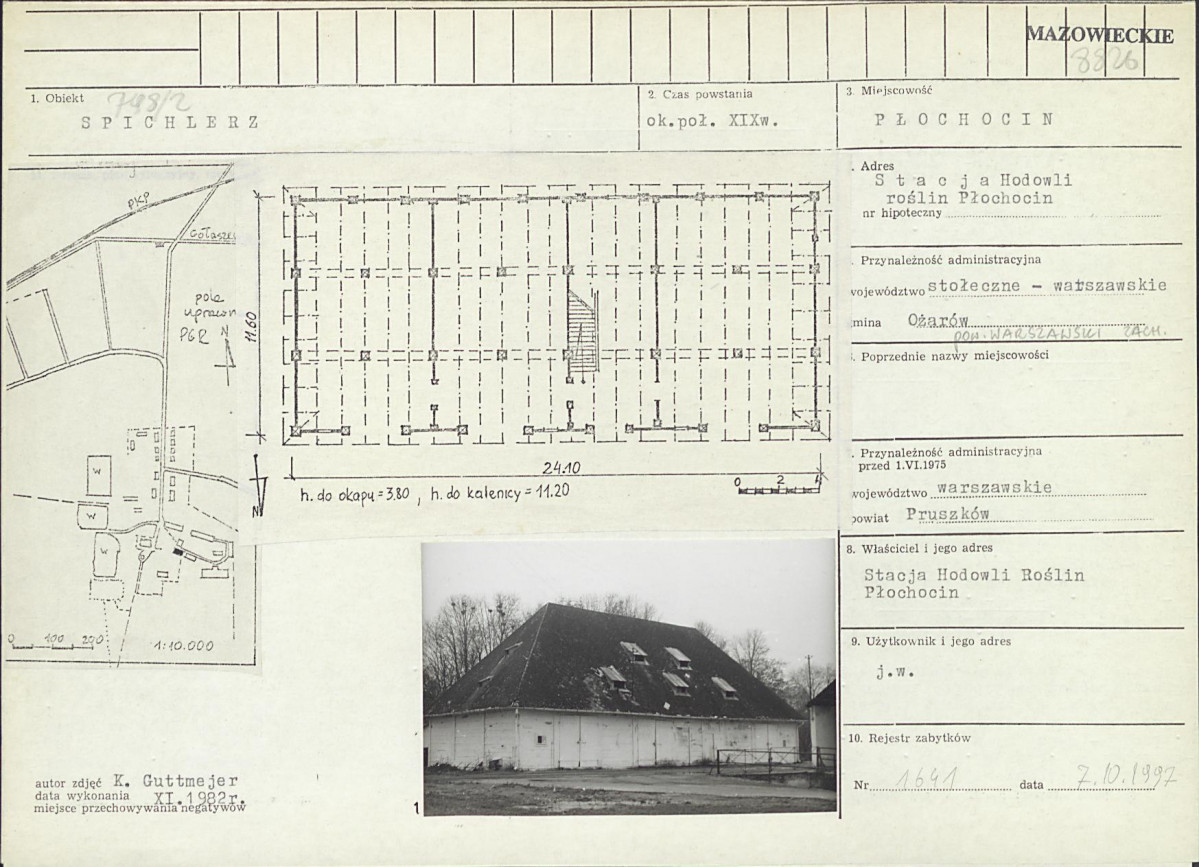 MAZOWIECKIE
8826
1. Obiekt
798/2
SPICHLERZ
2. Czas powstania
ok.poł. XIXw.
3. Miejscowość
PŁOCHOCIN
. Adres
Stacja Hodowli
roślin Płochocin
nr hipoteczny
. Przynależność administracyjna
województwo stołeczne - warszawskie
gmina Ożarów
POW. WARSZAWSKI ZACH.
. Poprzednie nazwy miejscowości
. Przynależność administracyjna
przed 1.VI.1975
województwo warszawskie
powiat Pruszków
8. Właściciel i jego adres
Stacja Hodowli Roślin
Płochocin
9. Użytkownik i jego adres
j.w.
10. Rejestr zabytków
Nr 1641 data 7.10.1997
PKP
Gołaszki
pola
uprawn
PGR
N
W
W
W
0 100 200
1:10.000
11.60
24.10
h. do okapu = 3.80 , h. do kalenicy = 11.20
0 2 4
N
autor zdjęć K. Guttmejer
data wykonania XI.1982r.
miejsce przechowywania negatywów
1